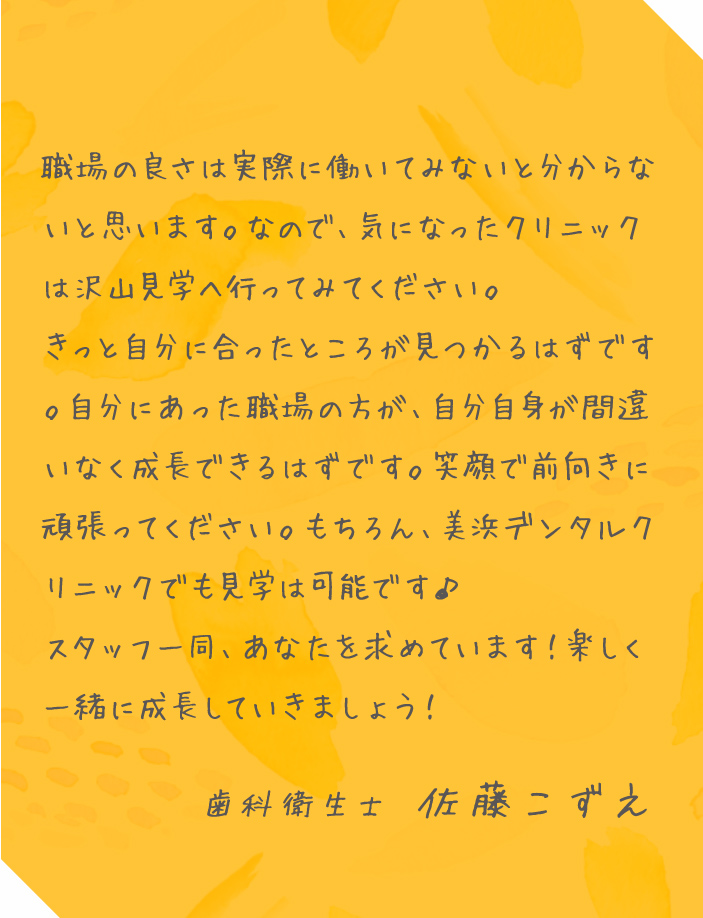 職場の良さは実際に働いてみないと分からな
いと思います。なので、気になったクリニック
は沢山見学へ行ってみてください。
きっと自分に合ったところが見つかるはずです
。自分にあった職場の方が、自分自身が間違
いなく成長できるはずです。笑顔で前向きに
頑張ってください。もちろん、美浜デンタルク
リニックでも見学は可能です♪
スタッフ一同、あなたを求めています！楽しく
一緒に成長していきましょう！
歯科衛生士 佐藤こずえ